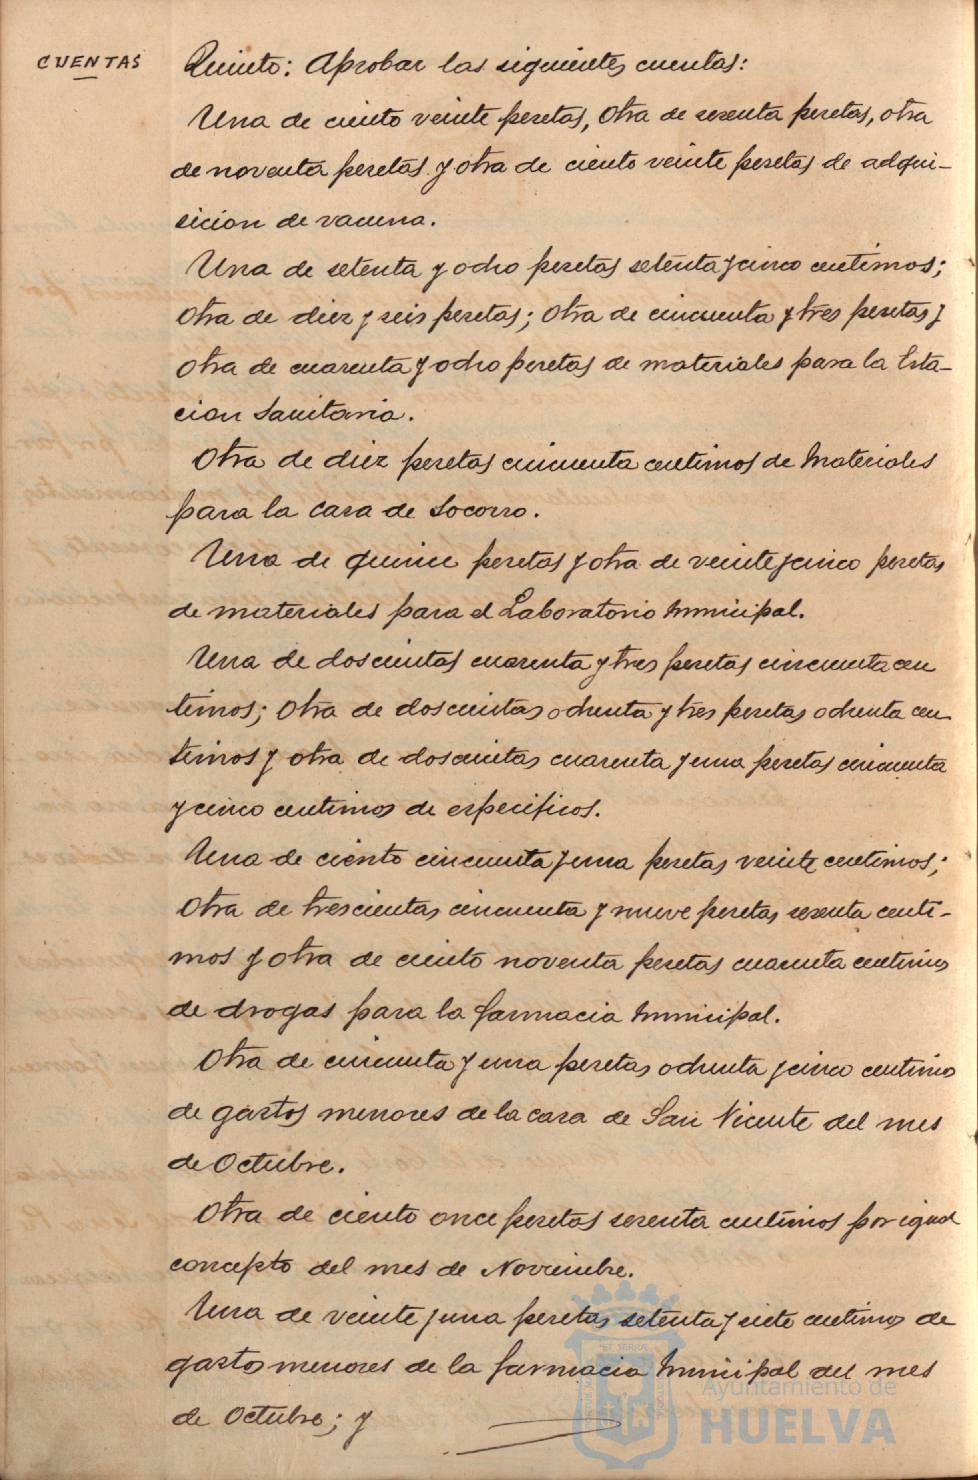 CUENTAS
Quinto: Aprobar las siguientes cuentas:
Una de ciento veinte pesetas, otra de sesenta pesetas, otra
de noventa pesetas y otra de ciento veinte pesetas de adqui-
sicion de vacuna.
Una de setenta y ocho pesetas setenta y cinco centimos;
otra de diez y seis pesetas; otra de cincuenta y tres pesetas y
otra de cuarenta y ocho pesetas de materiales para la Esta-
cion Sanitaria.
Otra de diez pesetas cincuenta centimos de Materiales
para la casa de Socorro.
Una de quince pesetas y otra de veinte y cinco pesetas
de materiales para el Laboratorio Municipal.
Una de doscientas cuarenta y tres pesetas cincuenta cen
timos; otra de doscientas ochenta y tres pesetas ochenta cen
timos y otra de doscientas cuarenta y una pesetas cincuenta
y cinco centimos de especificos.
Una de ciento cincuenta y una pesetas veinte centimos;
otra de trescientas cincuenta y nueve pesetas sesenta centi-
mos y otra de ciento noventa pesetas cuarenta centimos
de drogas para la farmacia Municipal.
Otra de cincuenta y una pesetas ochenta y cinco centimos
de gastos menores de la casa de San Vicente del mes
de Octubre.
Otra de ciento once pesetas sesenta centimos por igual
concepto del mes de Noviembre.
Una de veinte y una pesetas setenta y siete centimos de
gastos menores de la farmacia Municipal del mes
de Octubre; y
Ayuntamiento de
HUELVA